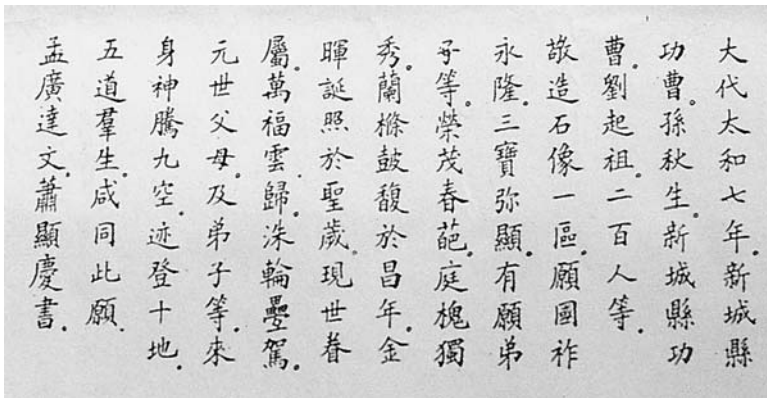 大代太和七年。新城縣
功曹。孫秋生。新城縣功
曹。劉起祖。二百人等。
敬造石像一區。願國祚
永隆。三寶弥顯。有願弟
子等。榮茂春葩。庭槐獨
秀。蘭條鼓馥於昌年。金
暉誕照於聖歲。現世眷
屬。萬福雲歸。洙輪疊駕。
元世父母。及弟子等。來
身神騰九空。迹登十地。
五道羣生。咸同此願。
孟廣達文。蕭顯慶書。